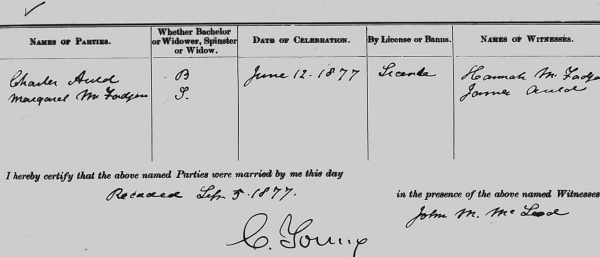 NAMES OF PARTIES. Whether Bachelor or Widower, Spinster or Widow. DATE OF CELEBRATION. By License or Banns. NAMES OF WITNESSES.
Charles Auld B June 12. 1877 License Hannah McFadye
Margaret McFadyen S. James Auld
I hereby certify that the above named Parties were married by me this day
in the presence of the above named Witnesses
Recorded Sep 5. 1877.
John M. McLeod
C. Young